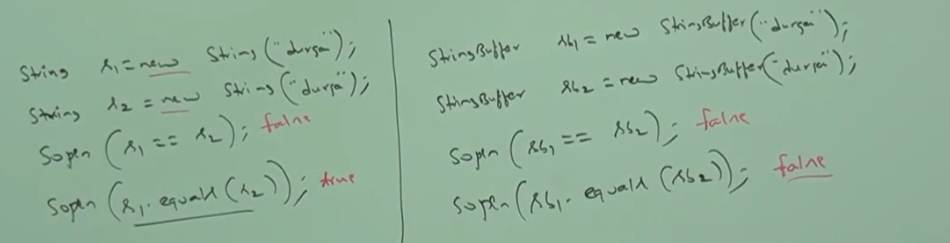 String s1 = new String("durga");
String s2 = new String("durga");
Sopln (s1 == s2); false
Sopln (s1.equals(s2)); true
StringBuffer sb1 = new StringBuffer("durga");
StringBuffer sb2 = new StringBuffer("durga");
Sopln (sb1 == sb2); false
Sopln (sb1.equals(sb2)); false